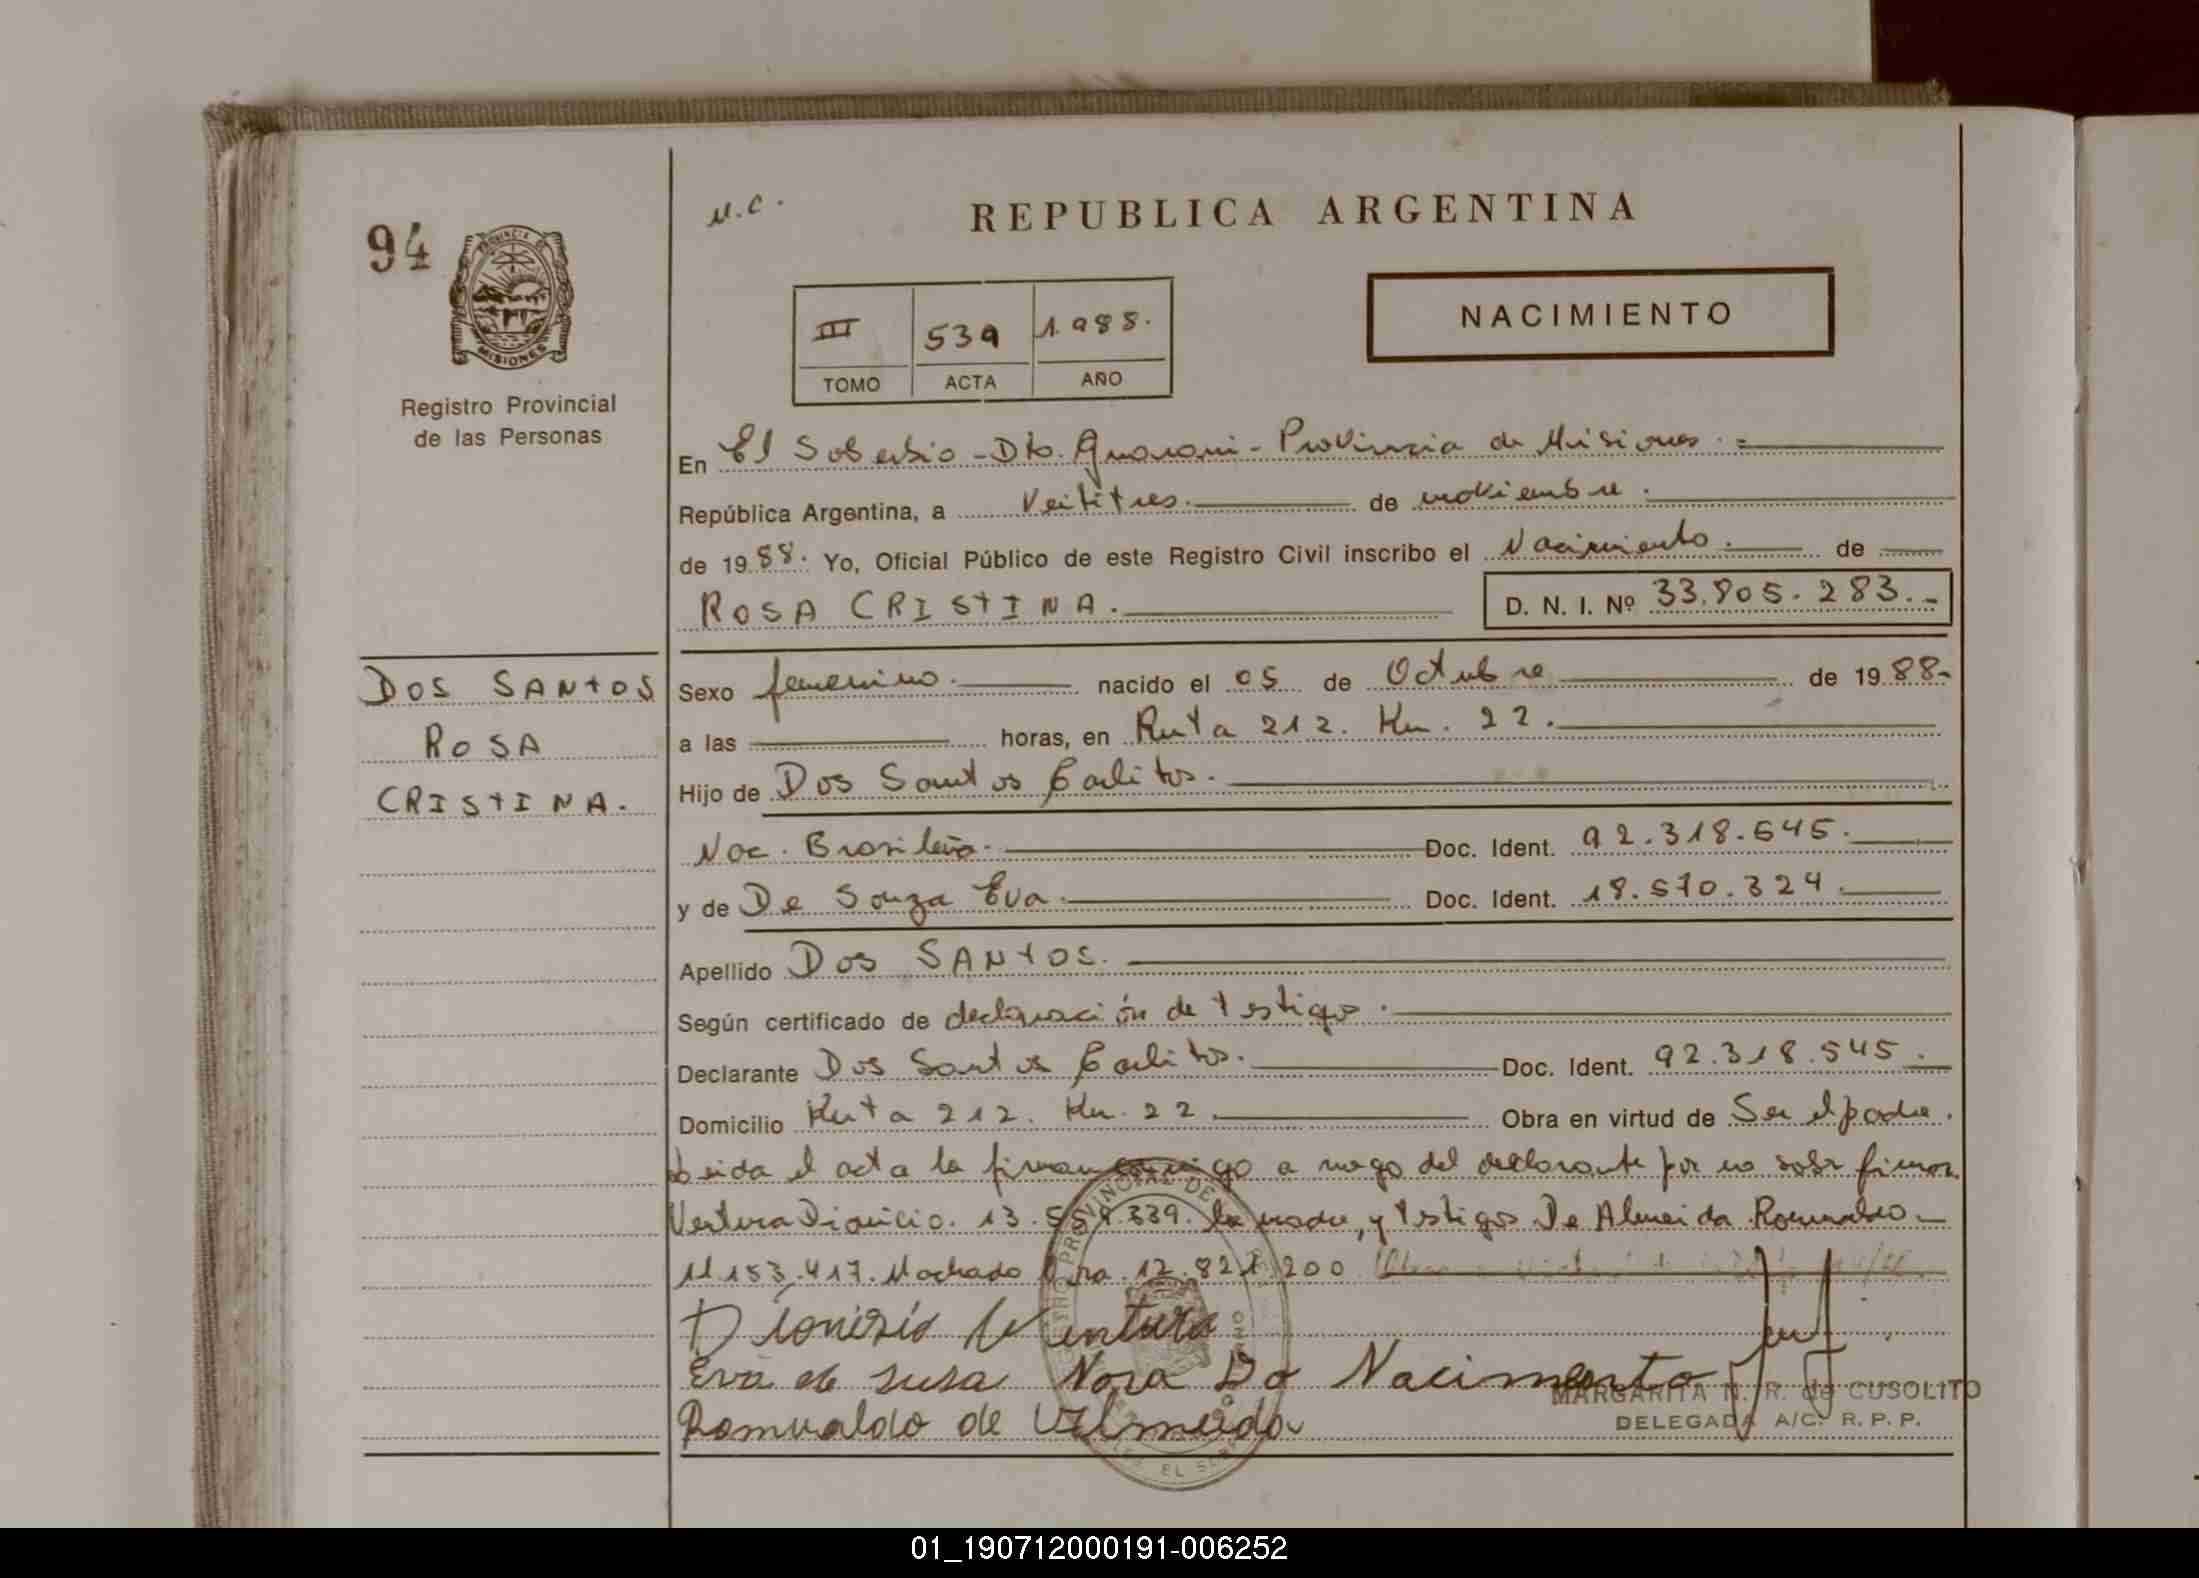 94
PROVINCIA DE
MISIONES
Registro Provincial
de las Personas
N.C.
REPUBLICA ARGENTINA
III 539 1.988.
TOMO ACTA AÑO
NACIMIENTO
En El Soberbio - Dto. Guarani - Provincia de Misiones.=
República Argentina, a Veititres. de noviembre.
de 1988. Yo, Oficial Público de este Registro Civil inscribo el Nacimiento. de
ROSA CRISTINA. D. N. I. Nº 33.905.283.-
DOS SANTOS
ROSA
CRISTINA.
Sexo femenino. nacido el 05 de Octubre de 1988-
a las horas, en Ruta 212. Km. 22.
Hijo de Dos Santos Carlitos.
Nac. Brasileña. Doc. Ident. 92.318.545.
y de De Souza Eva. Doc. Ident. 18.570.324.
Apellido DOS SANTOS.
Según certificado de declaración de testigos.
Declarante Dos Santos Carlitos. Doc. Ident. 92.318.545.
Domicilio Ruta 212. Km. 22. Obra en virtud de Ser el padre.
Leida el acta la firman conmigo a ruego del declarante por no saber firmar.
Ventura Dionicio. 13.559.339. la madre, y testigos De Almeida Romualdo-
11.153.417. Machado 12.821.200
Dionisio Ventura
Eva de susa Nora Do Nacimento
Romualdo de Almeida
MARGARITA N. R. de CUSOLITO
DELEGADA A/C. R. P. P.
01_190712000191-006252